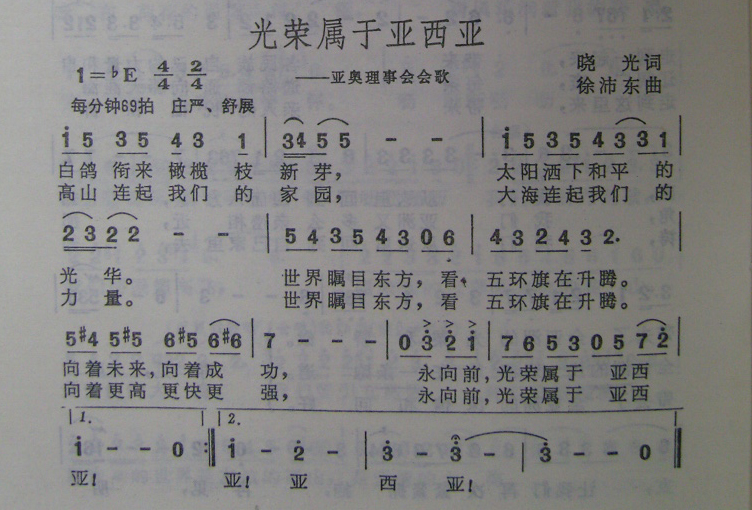 光荣属于亚西亚
1=♭E 4/4 2/4
——亚奥理事会会歌
晓 光词
徐沛东曲
每分钟69拍 庄严、舒展
i 5 3 5 4 3 1 | 3 4 5 5 - - | i 5 3 5 4 3 3 1 |
白鸽 衔来 橄榄 枝 新芽, 太阳洒下和平 的
高山 连起 我们 的 家园, 大海连起我们 的
2 3 2 2 - - | 5 4 3 5 4 3 0 6 | 4 3 2 4 3 2. |
光 华。 世界瞩目东方, 看, 五环旗在升腾。
力 量。 世界瞩目东方, 看 五环旗在升腾。
5 #4 5 #5 6 #5 6 #6 | 7 - - | 0 3 2 i | 7 6 5 3 0 5 7 2 |
向着未来, 向着成 功, 永向前, 光荣属于 亚西
向着更高 更快更 强, 永向前, 光荣属于 亚西
1. 2.
i - - 0 :| i - 2 - | 3 - 3 - | 3 - - 0 ‖
亚! 亚! 亚 西 亚!